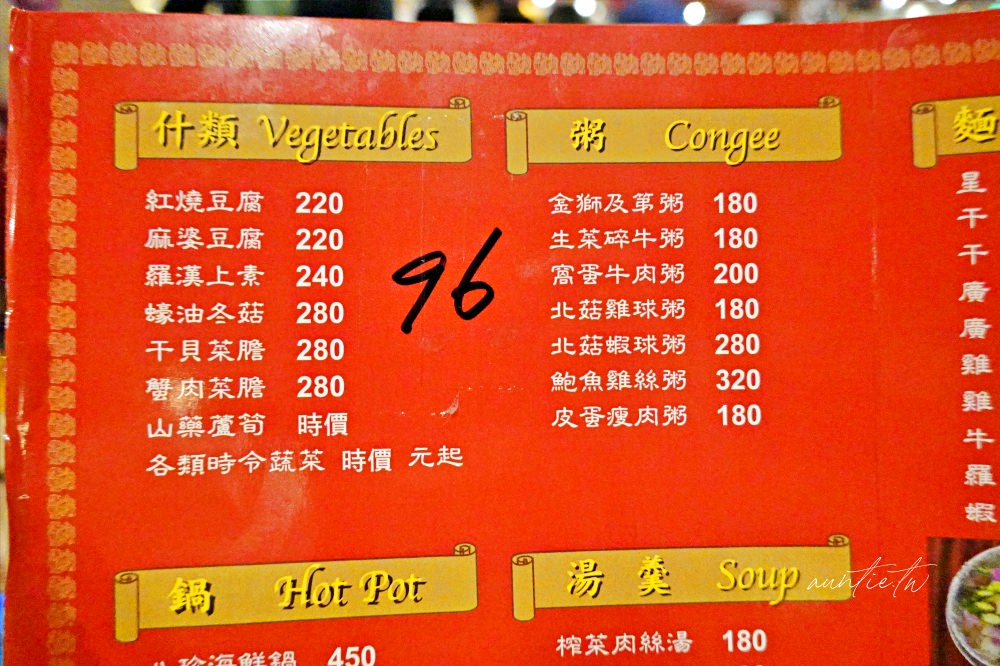 什類 Vegetables
紅燒豆腐 220
麻婆豆腐 220
羅漢上素 240
蠔油冬菇 280
干貝菜膽 280
蟹肉菜膽 280
山藥蘆筍 時價
各類時令蔬菜 時價 元起
96
粥 Congee
金獅及第粥 180
生菜碎牛粥 180
窩蛋牛肉粥 200
北菇雞球粥 180
北菇蝦球粥 280
鮑魚雞絲粥 320
皮蛋瘦肉粥 180
麵
星
干
干
廣
廣
雞
雞
牛
羅
蝦
鍋 Hot Pot
八珍海鮮鍋 450
湯羹 Soup
榨菜肉絲湯 180
auntie.tw